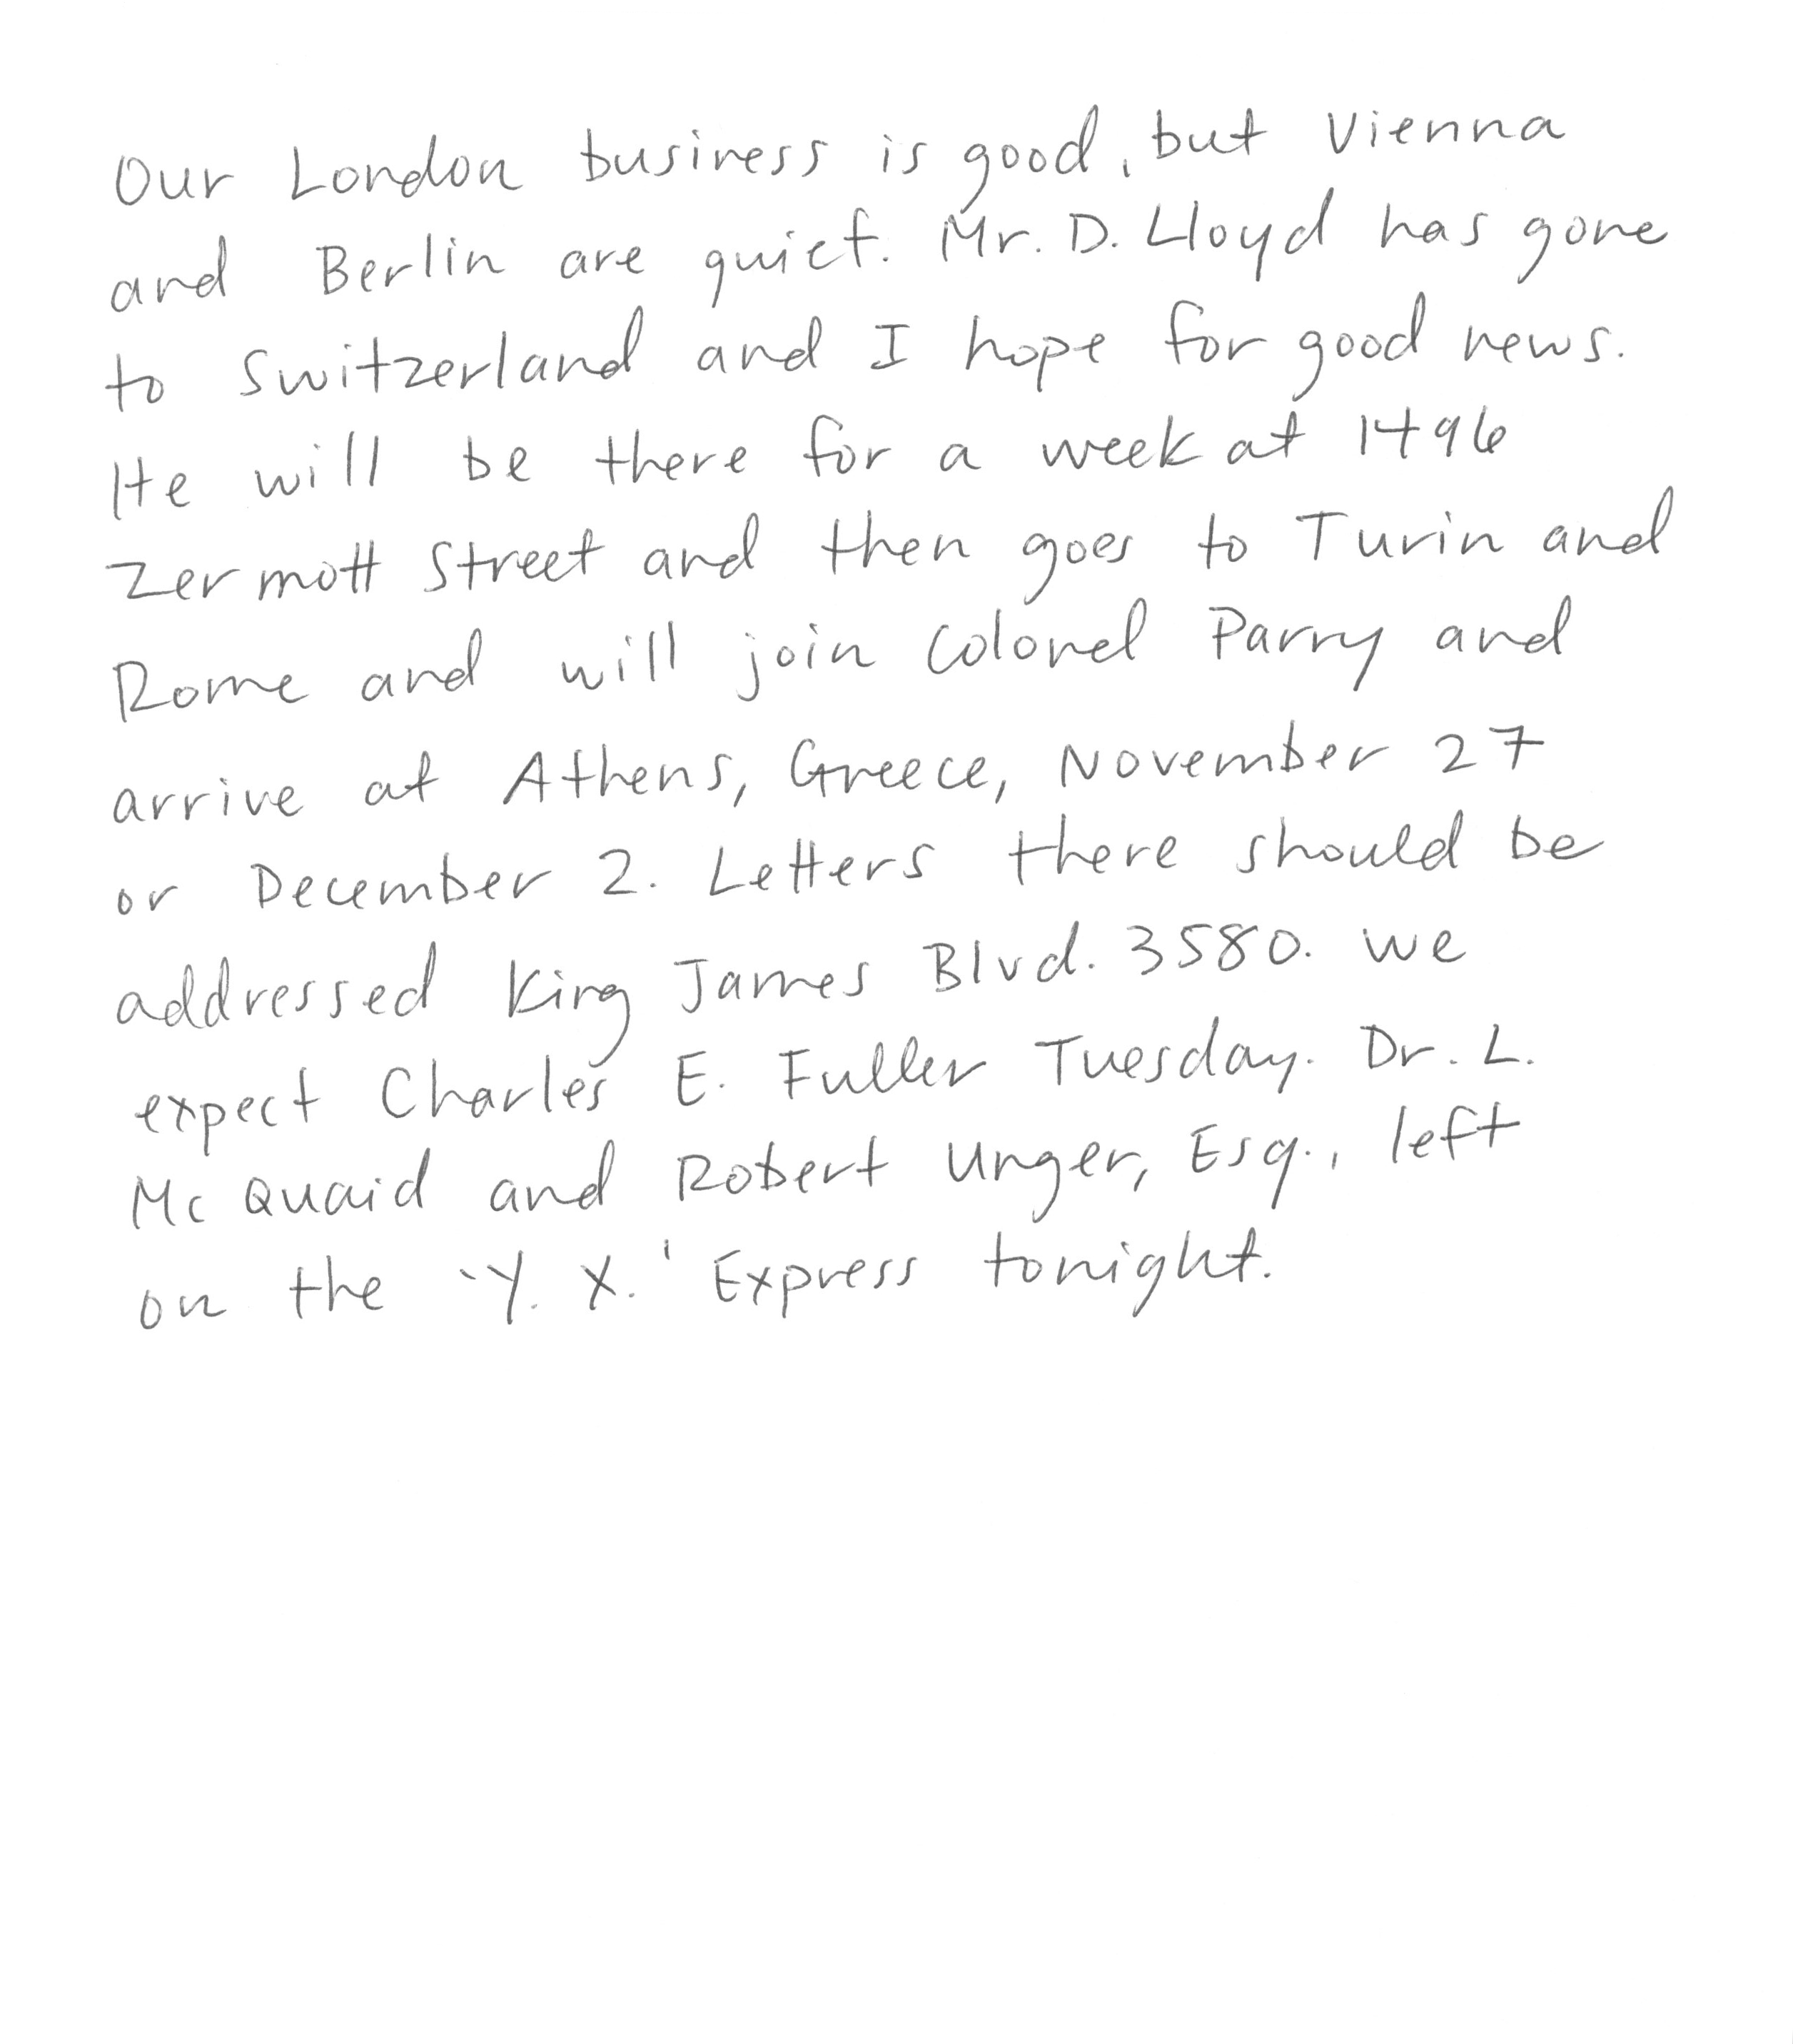 Our London business is good, but Vienna
and Berlin are quiet. Mr. D. Lloyd has gone
to Switzerland and I hope for good news.
He will be there for a week at 1496
Zermott Street and then goes to Turin and
Rome and will join Colonel Parry and
arrive at Athens, Greece, November 27
or December 2. Letters there should be
addressed King James Blvd. 3580. We
expect Charles E. Fuller Tuesday. Dr. L.
McQuaid and Robert Unger, Esq., left
on the 'Y. X.' Express tonight.